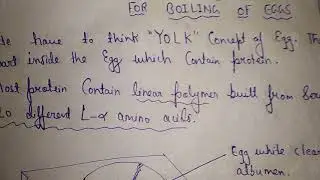 FOR BOILING OF EGGS
de have to think "YOLK" Concept of Egg. Th
art inside the Egg which Contain protein.
lost protein Contain linear polymer built from
20 different L-α amino acids.
Egg white clear
albumen.